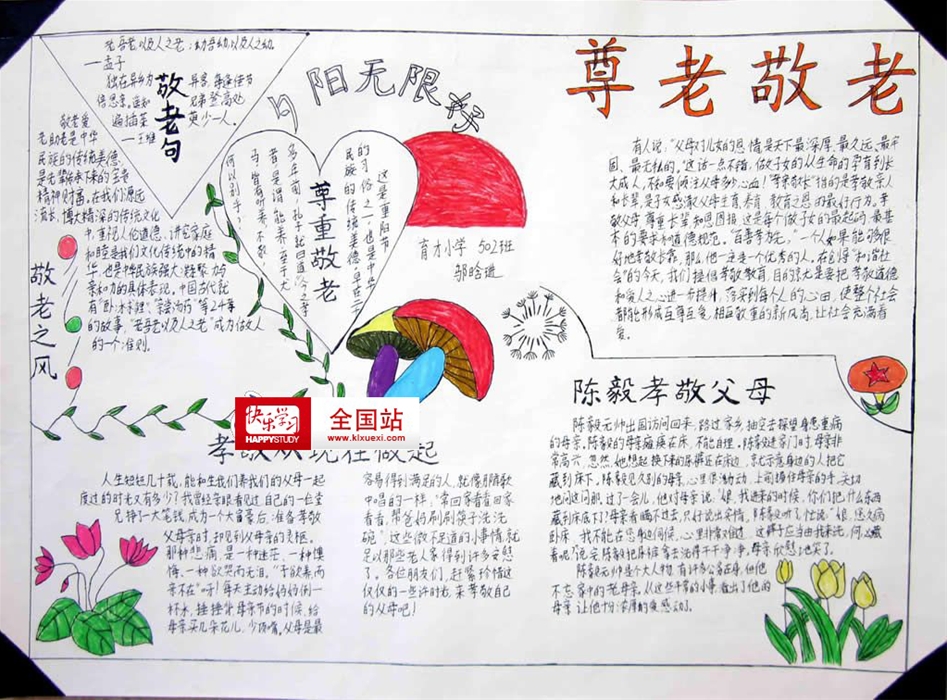 尊老敬老
夕阳无限好
老吾老以及人之老;幼吾幼以及人之幼
——孟子
独在异乡为异客,每逢佳节
倍思亲。遥知兄弟登高处,
遍插茱萸少一人。
——王维
敬老句
敬老爱
老助老是中华
民族的传统美德,
是先辈传承下来的宝贵
精神财富。在我们源远
流长、博大精深的传统文化
中,重视人伦道德、讲究家庭
和睦是我们文化传统中的精
华,也是中华民族强大凝聚力与
亲和力的具体表现。中国古代就
有“卧冰求鲤”、“尝汤药”等24孝
的故事,“老吾老以及人之老”成为做人
的一个准则。
敬老之风
尊重敬老
这是重阳节
的习俗之一,也是中华
民族的传统美德。早在
多年前,孔子就曰道:“今之孝
者,是谓能养。至于犬
马,皆有所养;不敬,
何以别乎?”
育才小学 502班
有人说,“父母对儿女的恩情是天下最深厚、最久远、最牢
固、最无私的。”这话一点不错,做子女的从生命的孕育到长
大成人,不知要倾注父母多少心血!“尊亲敬长”指的是孝敬亲人
和长辈,是子女感激父母生育、养育、教育之恩的最好行为。孝
敬父母、尊重长辈、知恩图报,这是每个做子女的最起码、最基
本的要求和道德规范。“百善孝为先,”一个人如果能够很
好地孝敬长辈,那么他一定是一个优秀的人。在创导“和谐社
会”的今天,我们提倡孝敬教育,目的就是要把孝敬道德
和爱人之心进一步提升,落实到每个人的心田,使整个社会
都能形成互尊互爱、相互敬重的新风尚,让社会充满着
爱。
快乐学习
HAPPYSTUDY
全国站
www.klxuexi.com
孝敬从现在做起
人生短短几十载,能和生我们养我们的父母一起
度过的时光又有多少?我曾经亲眼看见过,自己的一位堂
兄挣了一大笔钱,成为一个大富豪后,准备孝敬
父母亲时,却见到父母亲的灵柩。
那种悲痛是一种迷茫、一种懊
悔、一种欲哭而无泪。“子欲养而
亲不在”呀!每天主动给妈妈倒一
杯水、捶捶背,母亲节的时候,给
母亲买几朵花儿,少顶嘴,父母是最
容易得到满足的人,就像那首歌
中唱的一样:“常回家看看回家
看看,帮爸妈刷刷筷子洗洗
碗”,这些微不足道的小事情,就
足以那些老人家得到许多安慰
了。各位朋友们,赶紧珍惜这
仅仅的一些许时光,来孝敬自己
的父母吧!
陈毅孝敬父母
陈毅元帅出国访问回来,路过家乡,抽空去探望身患重病
的母亲。陈毅的母亲瘫痪在床,不能自理。陈毅进家门时,母亲非
常高兴,忽然,她想起换下来的尿裤还在床边,就示意身边的人把它
藏到床下。陈毅见久别的母亲,心里很激动,上前握住母亲的手,关切
地问这问那。过了一会儿,他对母亲说:“娘,我进来的时候,你们把什么东西
藏到床底下了?”母亲看瞒不过去,只好说出实情。陈毅听了,忙说:“娘,您久病
卧床,我不能在您身边伺候,心里非常难过,这裤子应当由我去洗,何必藏
着呢?”说完陈毅把尿裤拿去洗得干干净净,母亲欣慰地笑了。
陈毅元帅是个大人物,有许多公务在身,但他
不忘家中的老母亲。从这些平常的小事,看出了他的
母亲,让他十分浓厚的爱感动了。